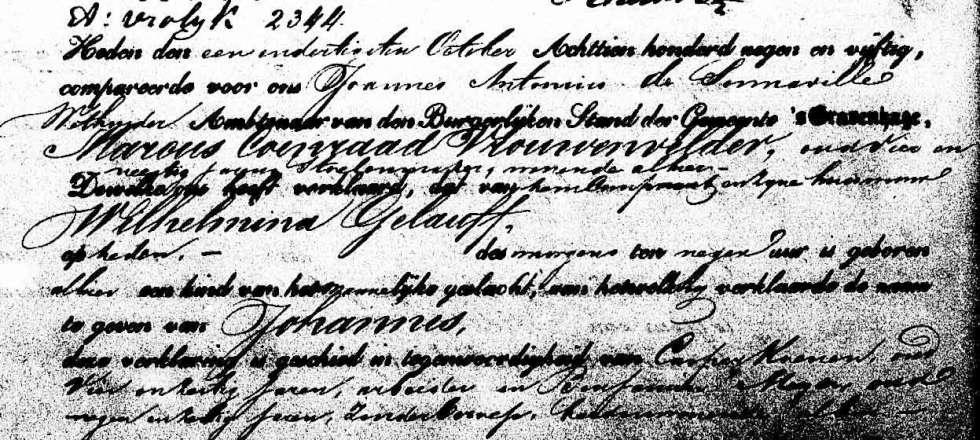 A: vrolyk 2344.
Heden den een en dertigsten October Achttien honderd negen en vijftig,
compareerde voor ons Joannes Antonius de Sonnaville
Wethouder Ambtenaar van den Burgerlijken Stand der Gemeente 's Gravenhage,
Marcus Coenraad Vrouwenvelder, oud vier en
veertig jaren, wonende alhier
Dewelke ons heeft verklaard, dat van hem Comparant en zijne huisvrouw
Wilhelmina Gelauff,
op heden, - des morgens ten negen uur is geboren
alhier een kind van het mannelijke geslacht, aan hetwelk hij verklaarde de naam
te geven van Johannes,
deze verklaring is geschied in tegenwoordigheid van Koenen, oud
Vier en jaren, arbeider en Benjamin oud
negen en jaren, Zonder beroep,